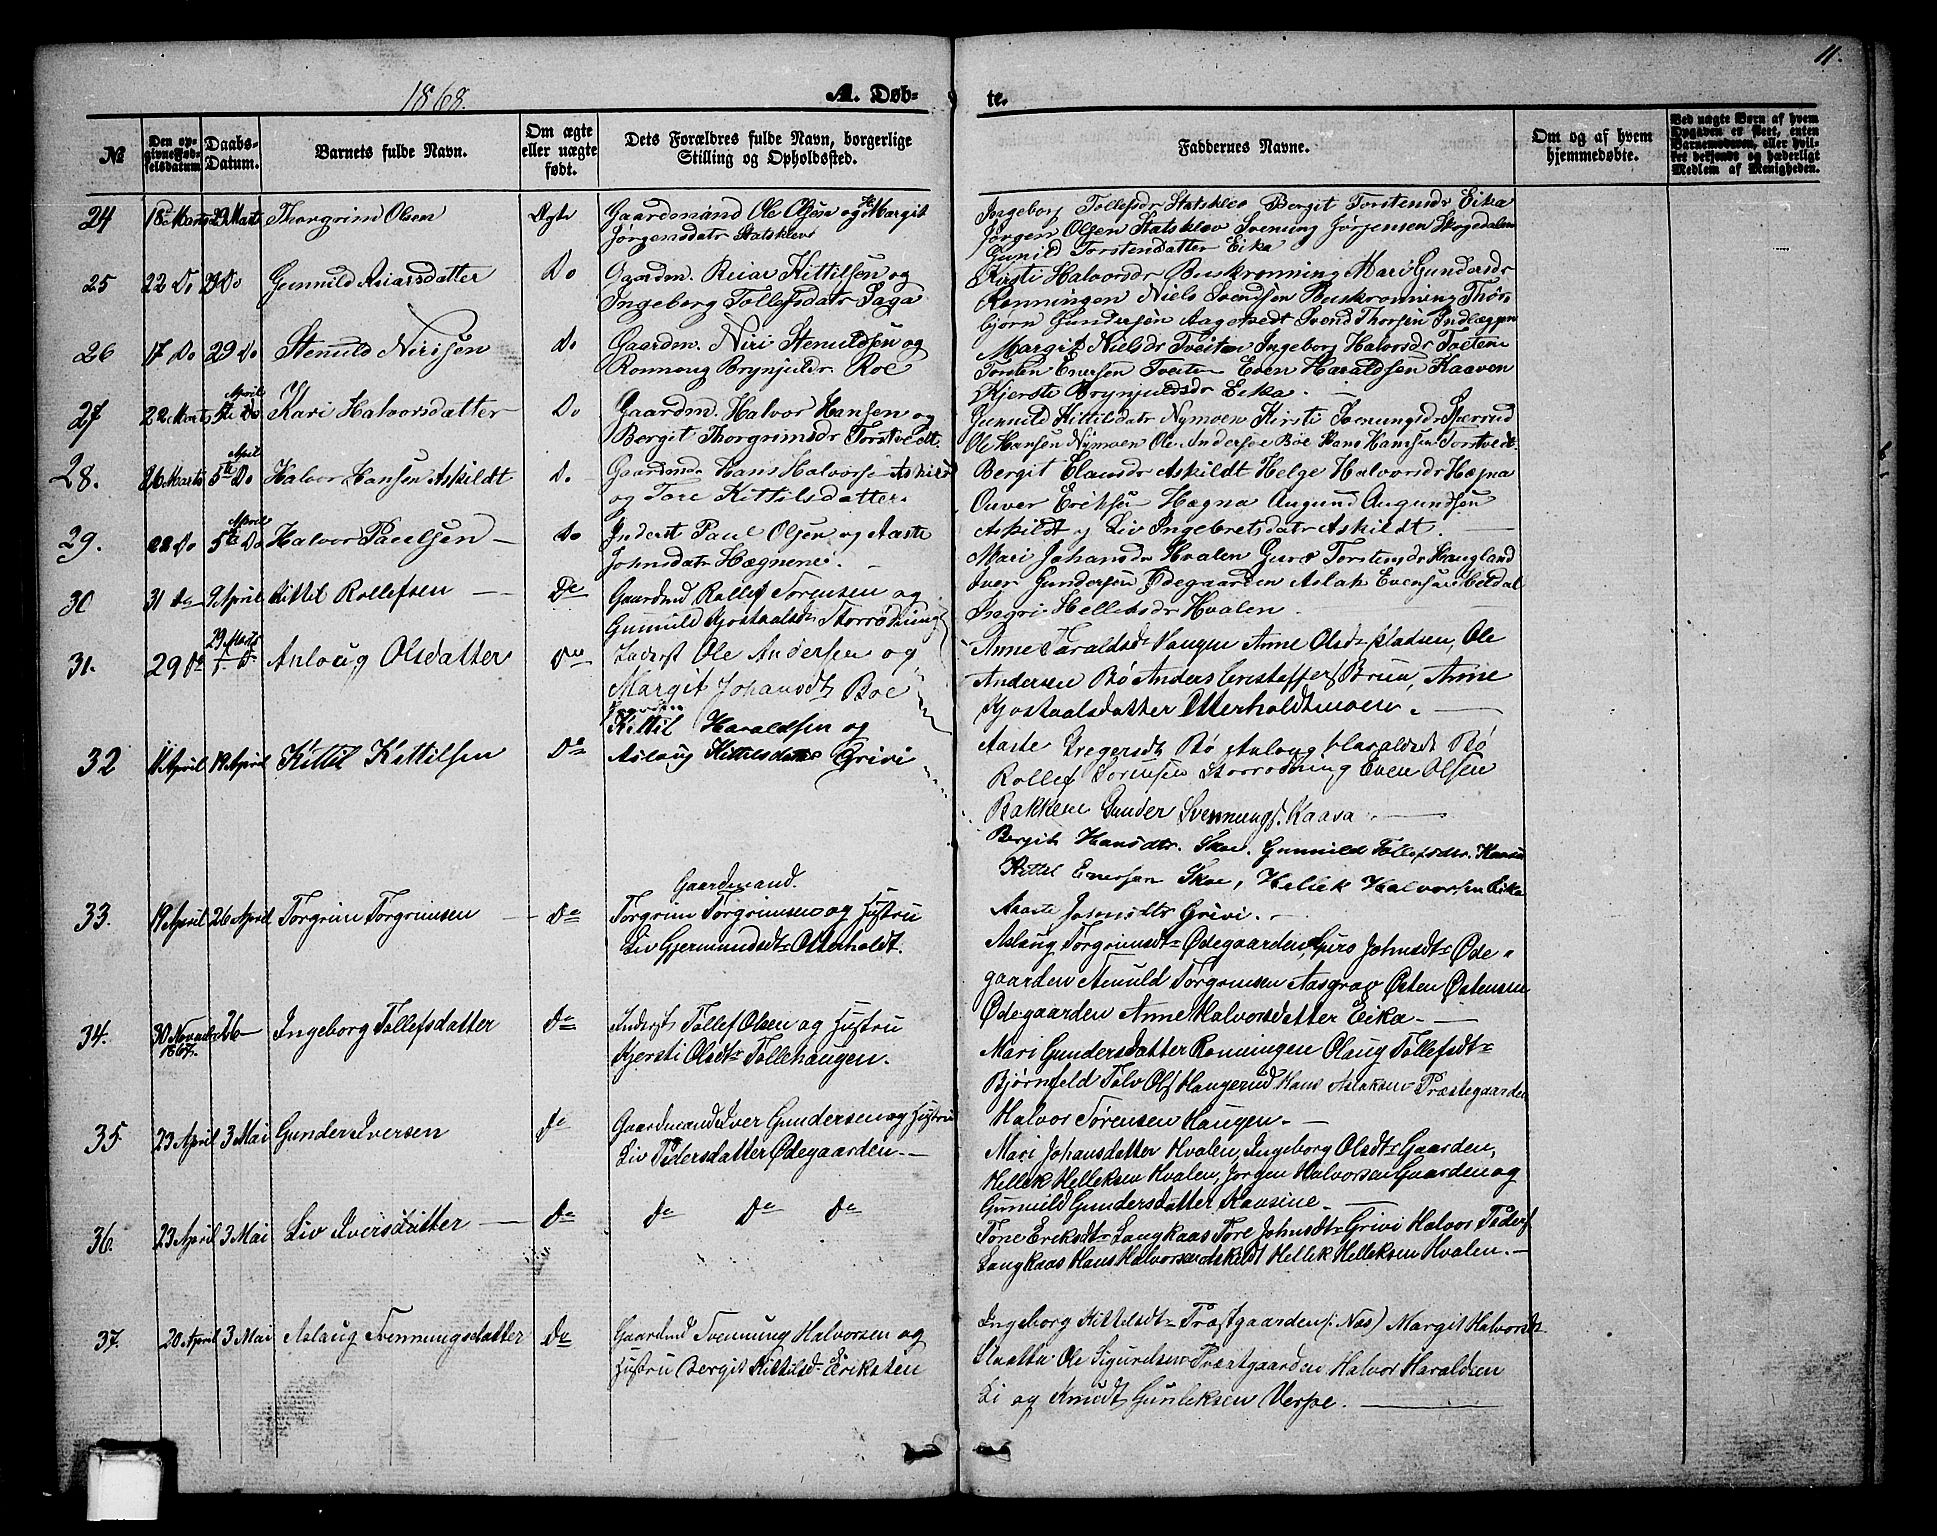 11.
1868.
A. Døb-
te.
№
Den op-
givne Fød-
selsdatum
Daabs-
Datum.
Barnets fulde Navn.
Om ægte
eller uægte
født.
Dets Forældres fulde Navn, borgerlige
Stilling og Opholdssted.
Faddernes Navne.
Om og af hvem
hjemmedøbte.
Ved uægte Børn af hvem
Opgaven er skeet, enten
Barnemoderen, eller hvil-
ket bekjendt og hæderligt
Medlem af Menigheden.
24 18 Marts 29 Marts Thorgrim Olsen Ægte Gaardmand Ole Olsen og Margit
Jørgensdatr Statsklev
Ingeborg Tollefsdr Statsklev Bergit Torstensdr Eika
Jørgen Olsen Statsklev Svenung Jørgensen Skogedalen
Gunild Torstensdatter Eika
25 22 Do 29 Do Gunnild Reiarsdatter Do Gaardm. Reiar Kittilsen og
Ingeborg Tollefsdatr Saga
Kirsti Halvorsdr Buskrønning Mari Gundersdr
Rønningen Niels Svendsen Buskrønning Thor
bjørn Gundersen Aagetvedt Svend Thorsen Indlæggen
26 17 Do 29 Do Stenuld Nirisen Do Gaardm. Niri Stenuldsen og
Ronnoug Brynjuldr. Roe
Margit Nielsdr Tveiten Ingeborg Halvorsdr Tveiten
Torsten Enersen Tveiten Even Haraldsen Kaaven
Kjerste Brynjuldsdr Eika.
27 22 Marts 5te April Do Kari Halvorsdatter Do Gaardm. Halvor Hansen og
Bergit Thorgrimsdr Torstvedt
Gunuld Kittilsdatr Nymoen Kirsti Svenungsdr Sperrud
Ole Hansen Nymoen Ole Anderse Bøe Hans Hansen Torstvedt
28. 26 Marts 5te April Do Halvor Hansen Askildt Do Gaardmd Hans Halvorse Askildt
og Tore Kittilsdatter.
Bergit Clausdr Askildt Helge Halvorsdr Hægna
Ouver Eriksen Hægna Augund Augundsen
Askildt og Liv Ingebretsdatr Askildt.
29. 22 Do 5te April Do Halvor Paulsen Do Inderst Paul Olsen og Aaste
Johnsdatr Hægnene.
Mari Johansdr Hvalen Guro Torstensdr Haugland
Iver Gundersen Ødegaarden Aslak Evensen Heldal
Ingri Helleksdr Hvalen.
30 31 Do 9 April Kittil Rollefsen Do Gaardmd Rollef Sørensen og
Gunuld Kjostaalsdr Storrønning
Anne Taraldsdr Haugen Anne Olsdr Pladsen, Ole
Andersen Bø Anders Cristoffers Bruu, Anne
Kjostaalsdatter Otterholdtmoen.
31. 29 Do 29 Marts Anloug Olsdatter Do Inderst Ole Andersen og
Margit Johansdtr Boe
Aaste Gregersdt Bø Anloug Haraldsdt Bø
Rollef Sørensen Storrødning Even Olsen
Bakkene Gunder Svennungs. Kaasa.
32 11 April 19 April Kittil Kittilsen Do Kittil Haraldsen og
Aslaug Kittilsdatter Grivi
Bergit Hansdtr. Skoe. Gunnild Tollefsdtr. Kaasa
Kittel Enersen Skoe, Hellek Halvorsen Eika
Aaste Johnsdtr Grivi.
33. 19 April 26 April Torgrim Torgrimsen Do Gaardmand.
Torgrim Torgrimsen og Hustru
Liv Gjermundsdtr Otterholdt.
Aslaug Torgrimsdtr Ødegaarden, Guro Johnsdtr Øde-
gaarden Stenuld Torgrimsen Aasgrav Østen Østensen
Ødegaarden Anne Halvorsdatter Eika.
34. 30 November 1867. 26 Ingeborg Tollefsdatter Do Inderst Tollef Olsen og Hustru
Kjersti Olsdtr Tollehaugen.
Mari Gundersdatter Rønningen Olaug Tollefsdtr
Bjørnfeld Tolv Ols Haugerud Hans Aslaksen Præstegaarden
Halvor Sørensen Haugen.
35. 23 April 3 Mai Gunder Iversen Do Gaardmand Iver Gundersen og Hustru
Liv Pedersdatter Ødegaarden.
Mari Johansdatter Hvalen, Ingeborg Olsdtr Gaarden,
Hellek Helleksen Hvalen, Jørgen Halvorsen Gaarden og
Gunuld Gundersdatter Kaasine.
36. 23 April 3 Mai Liv Iversdatter Do Do Do Do
Tone Eriksdtr Langkaas Tore Johnsdtr Grivi Halvor Peders
Langkaas Hans Halvorsen Askildt Hellek Helleksen Hvalen.
37. 20 April 3 Mai Aslaug Svennungsdatter Do Gaardmd Svennung Halvorsen og
Hustru Bergit Kittilsdtr Eriksten
Ingeborg Kittelsdtr Præstgaarden (i Næs) Margit Halvorsdtr
Sletta Ole Sigurdsen Præstgaarden Halvor Haraldsen
Li og Knudt Gunleksen Verpe.